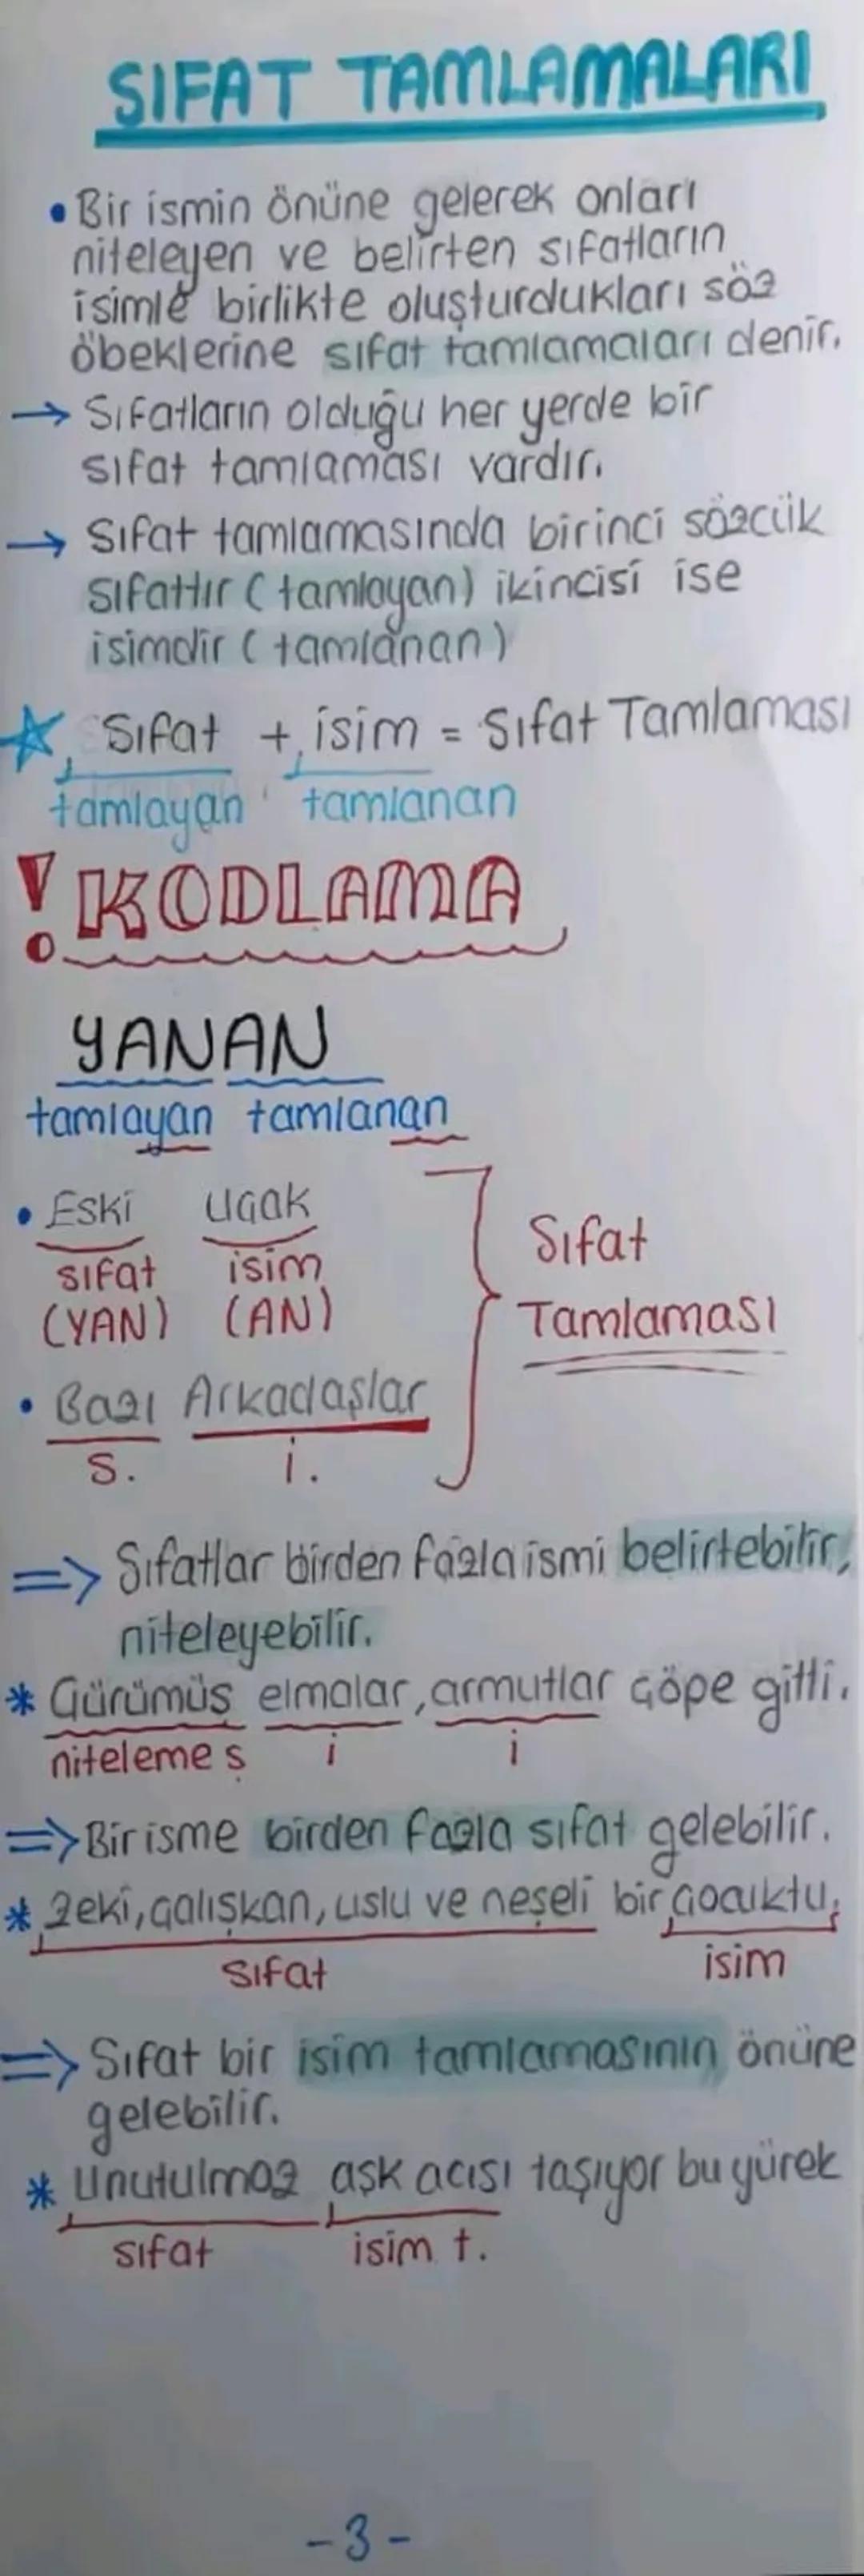 SIFAT TAMLAMALARI
• Bir ismin önüne gelerek onları
niteleyen ve belirten sıfatların
isimle birlikte oluşturdukları söz
öbeklerine sıfat tamlamaları denir.
→ Sıfatların olduğu her yerde bir
sıfat tamlaması vardır.
→ Sıfat tamlamasında birinci sözcük
sıfattır (tamlayan) ikincisi ise
isimdir (tamlanan)
☆ Sıfat + isim = Sıfat Tamlaması
tamlayan tamlanan
! KODLAMA
YANAN
tamlayan tamlanan
• Eski uçak
sıfat isim
(YAN) (AN)
Sıfat
Tamlaması
• Bazı Arkadaşlar
s. i.
=> Sıfatlar birden fazla ismi belirtebilir,
niteleyebilir.
* Çürümüş elmalar, armutlar çöpe gitti.
niteleme s i i
=> Bir isme birden fazla sıfat gelebilir.
* Zeki, çalışkan, uslu ve neşeli bir çocuktu.
sıfat isim
=> Sıfat bir isim tamlamasının önüne
gelebilir.
* Unutulmaz aşk acısı taşıyor bu yürek
sıfat isim t.
-3-